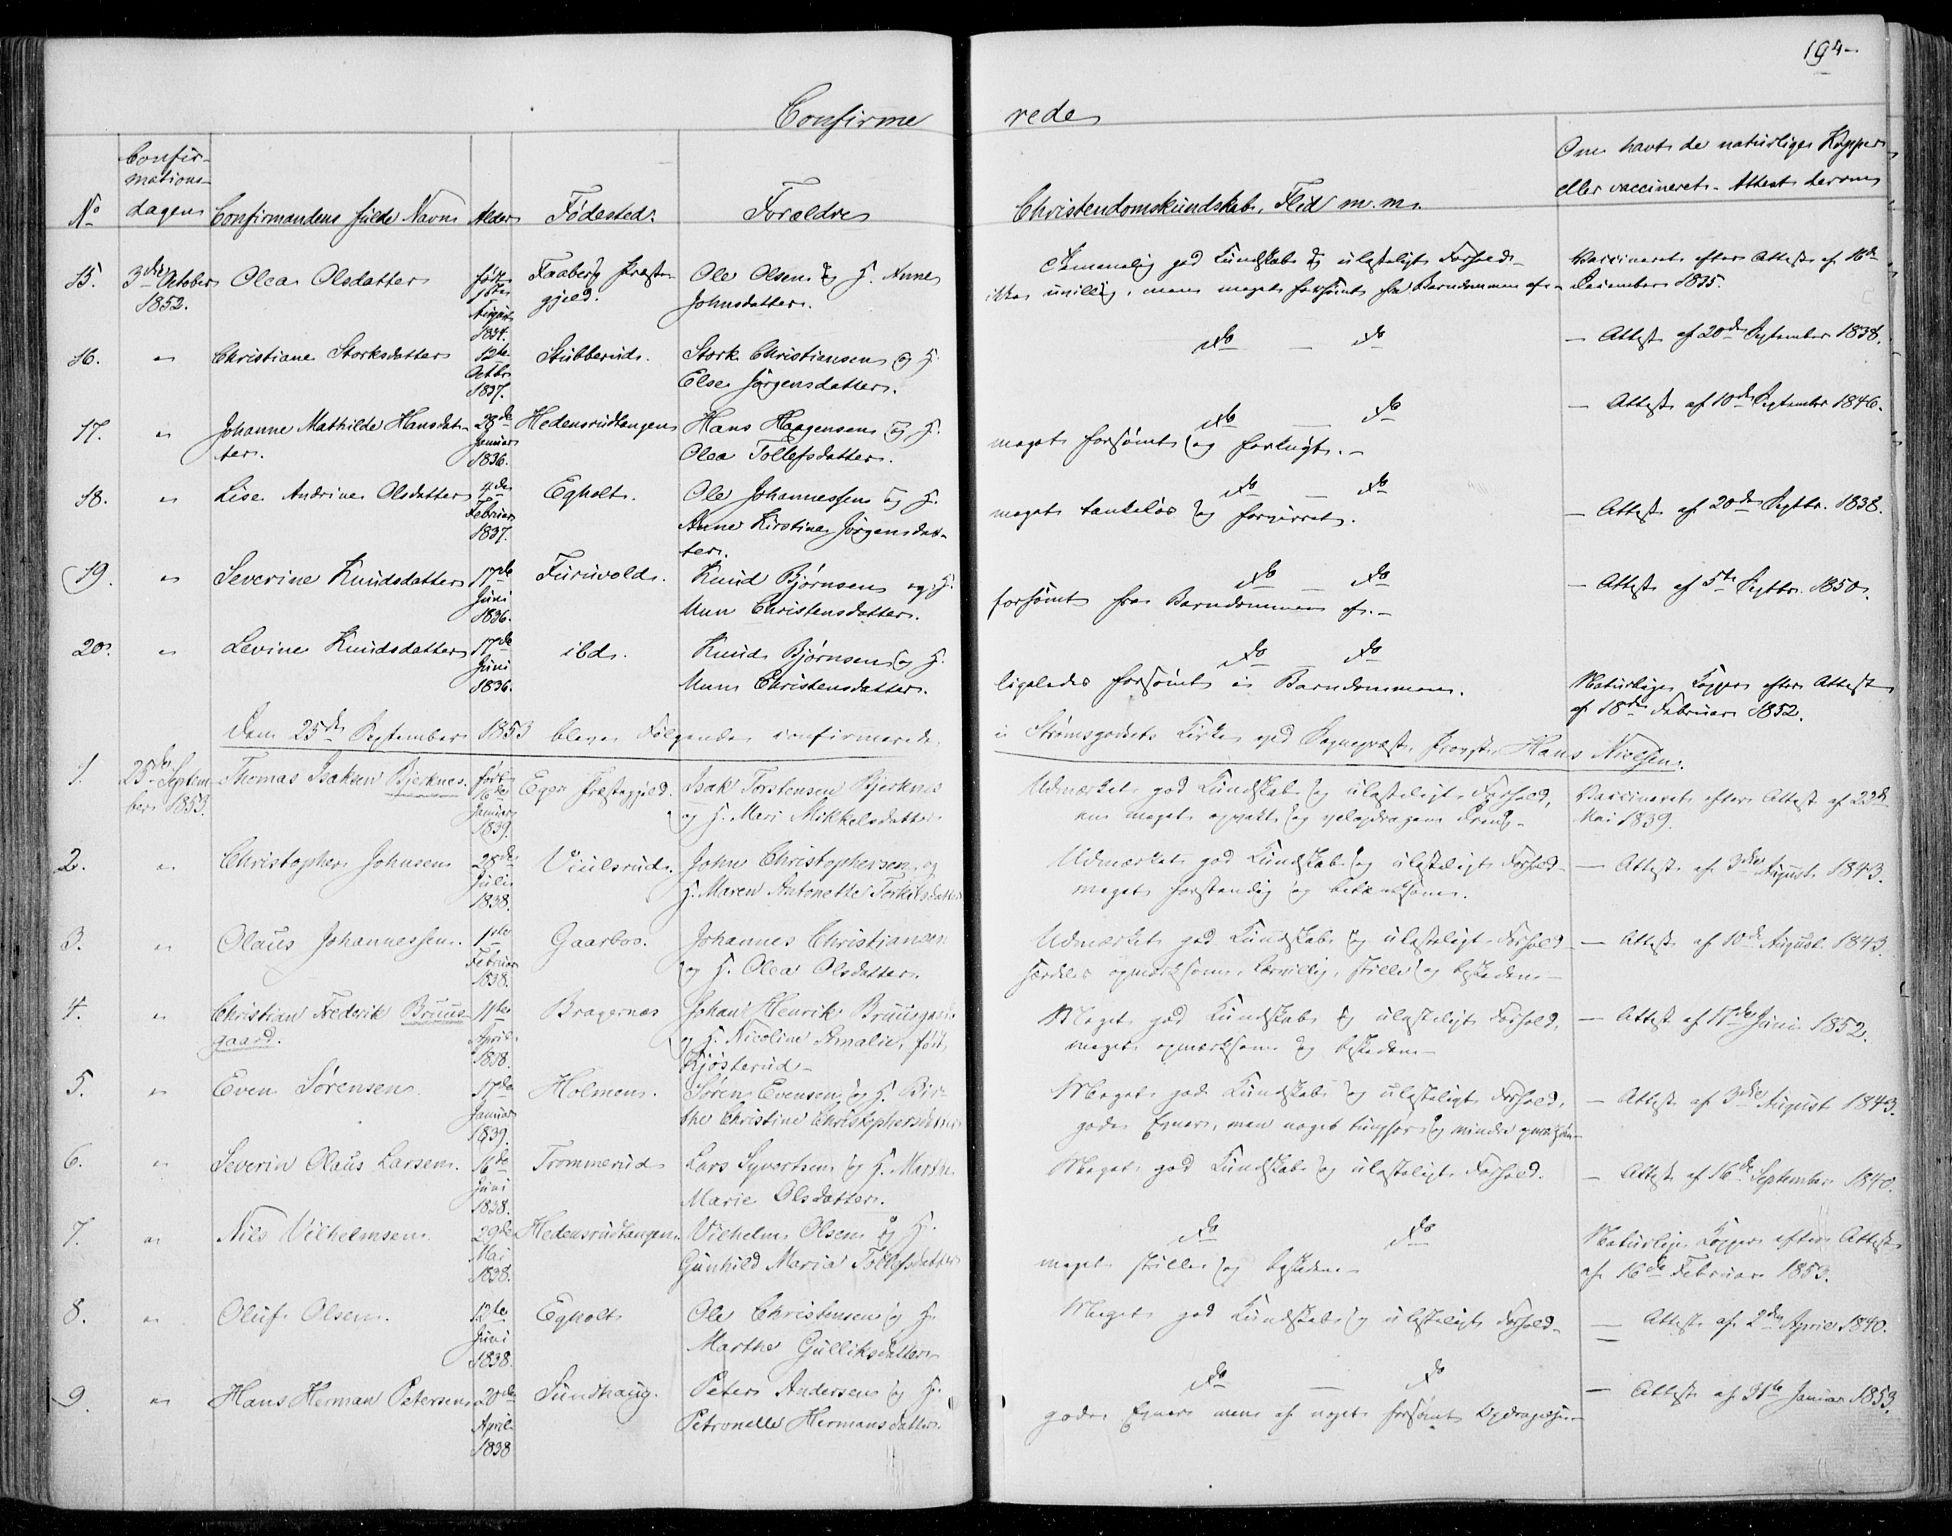 194
Confirmerede
No
Confirmationsdagen
Confirmandens fulde Navn
Alder
Fødested.
Forældre
Christendomskundskab, Flid m.m.
Om havt de naturlige Kopper
eller vaccineret. Attest derom
15. 3die October 1852. Olea Olsdatter født 1ste August 1834. Faaberg Præstegjeld. Ole Olsen og H. Anne
Johnsdatter.
Temmelig god Kundskab og ulasteligt Forhold
ikke uvillig, men meget forsömt fra Barndommen af
Vaccineret efter Attest af 16de
December 1835.
16. " Christiane Storksdatter 12te Octbr 1837. Stubberud. Stork Christiansen og H.
Else Jørgensdatter.
do — do
— Attest af 20de September 1838.
17. " Johanne Mathilde Hansdatter. 28de Januar 1836. Hedensrudtangen Hans Haagensen og H.
Olea Tollefsdatter.
do — do
meget forsömt og
— Attest af 10de September 1846.
18. " Lise Andrine Olsdatter 4de Februar 1837. Egholt. Ole Johannessen og H.
Anne Kirstine Jörgensdatter.
do — do
meget tankeløs og forvirret.
— Attest af 20de Septbr. 1838.
19. " Severine Knudsdatter 17de Juni 1836. Furuvold. Knud Bjørnsen og H.
Mum Christensdatter.
do — do
forsömt fra Barndommen af.
— Attest af 5te Septbr. 1850.
20. " Levine Knudsdatter 17de Juni 1836. ibd. Knud Bjørnsen og H.
Mum Christensdatter.
do — do
ligeledes forsömt i Barndommen.
Naturlige Kopper efter Attest
af 18de Februar 1852.
Den 25de September 1853 bleve Følgende confirmerede i Strømsgodsets Kirke ved Sognepræst, Provst Hans Nielsen.
1. 25de September 1853. Thomas Isaksen Bjerknes. født 16de Januar 1839. Eger Præstegjeld. Isak Torstensen Bjerknes
og H. Mari Mikkelsdatter
Udmærket god Kundskab og ulasteligt Forhold,
en meget opvakt og velopdragen Dreng.
Vaccineret efter Attest af 23de
Mai 1839.
2. " Christopher Johnsen 28de Juli 1838. Viulsrud. John Christophersen og
H. Maren Antonette Torkilsdatter
Udmærket god Kundskab og ulasteligt Forhold
meget forstandig og
— Attest af 3die August 1843.
3. " Olaus Johannessen. 1ste Februar 1838. Gaarbo. Johannes Christiansen
og H. Olea Olsdatter.
Udmærket god Kundskab og ulasteligt Forhold
særdeles opmærksom, lærvillig, stille og beskeden
— Attest af 10de August 1843.
4. " Christian Frederik Bruusgaard. 11te April 1838. Bragernes Johan Henrik Bruusgaard
og H. Nicoline Amalie, født
Kjösterud
Meget god Kundskab og ulasteligt Forhold,
meget opmærksom og beskeden
— Attest af 17de Juni 1852.
5. " Even Sørensen 17de Januar 1839. Holmen. Søren Evensen og H. Birthe Christine Christophersdatter
Meget god Kundskab og ulasteligt Forhold,
gode Evner, men noget tungfør og mindre
— Attest af 3die August 1843.
6. " Severin Olaus Larsen. 16de Juni 1838. Trommerud Lars Syvertsen og H. Marthe
Marie Olsdatter.
Meget god Kundskab og ulasteligt Forhold.
— Attest af 16de September 1840.
7. " Nils Vilhelmsen 29de Mai 1838. Hedensrudtangen. Vilhelm Olsen og H.
Gunhild Maria Tollefsdatter
do do
meget stille og beskeden
Naturlige Kopper efter Attest
af 16de Februar 1853.
8. " Oluf Olsen. 12te Juni 1838. Egholt Ole Christensen og H.
Marthe Gulliksdatter
Meget god Kundskab og ulasteligt Forhold
— Attest af 2den April 1840.
9. " Hans Herman Petersen 20de April 1838 Sundhaug. Peter Andersen og H.
Petronelle Hermansdatter.
do — do
gode Evner men af noget forsömt Opdragelse
— Attest af 31te Januar 1853.